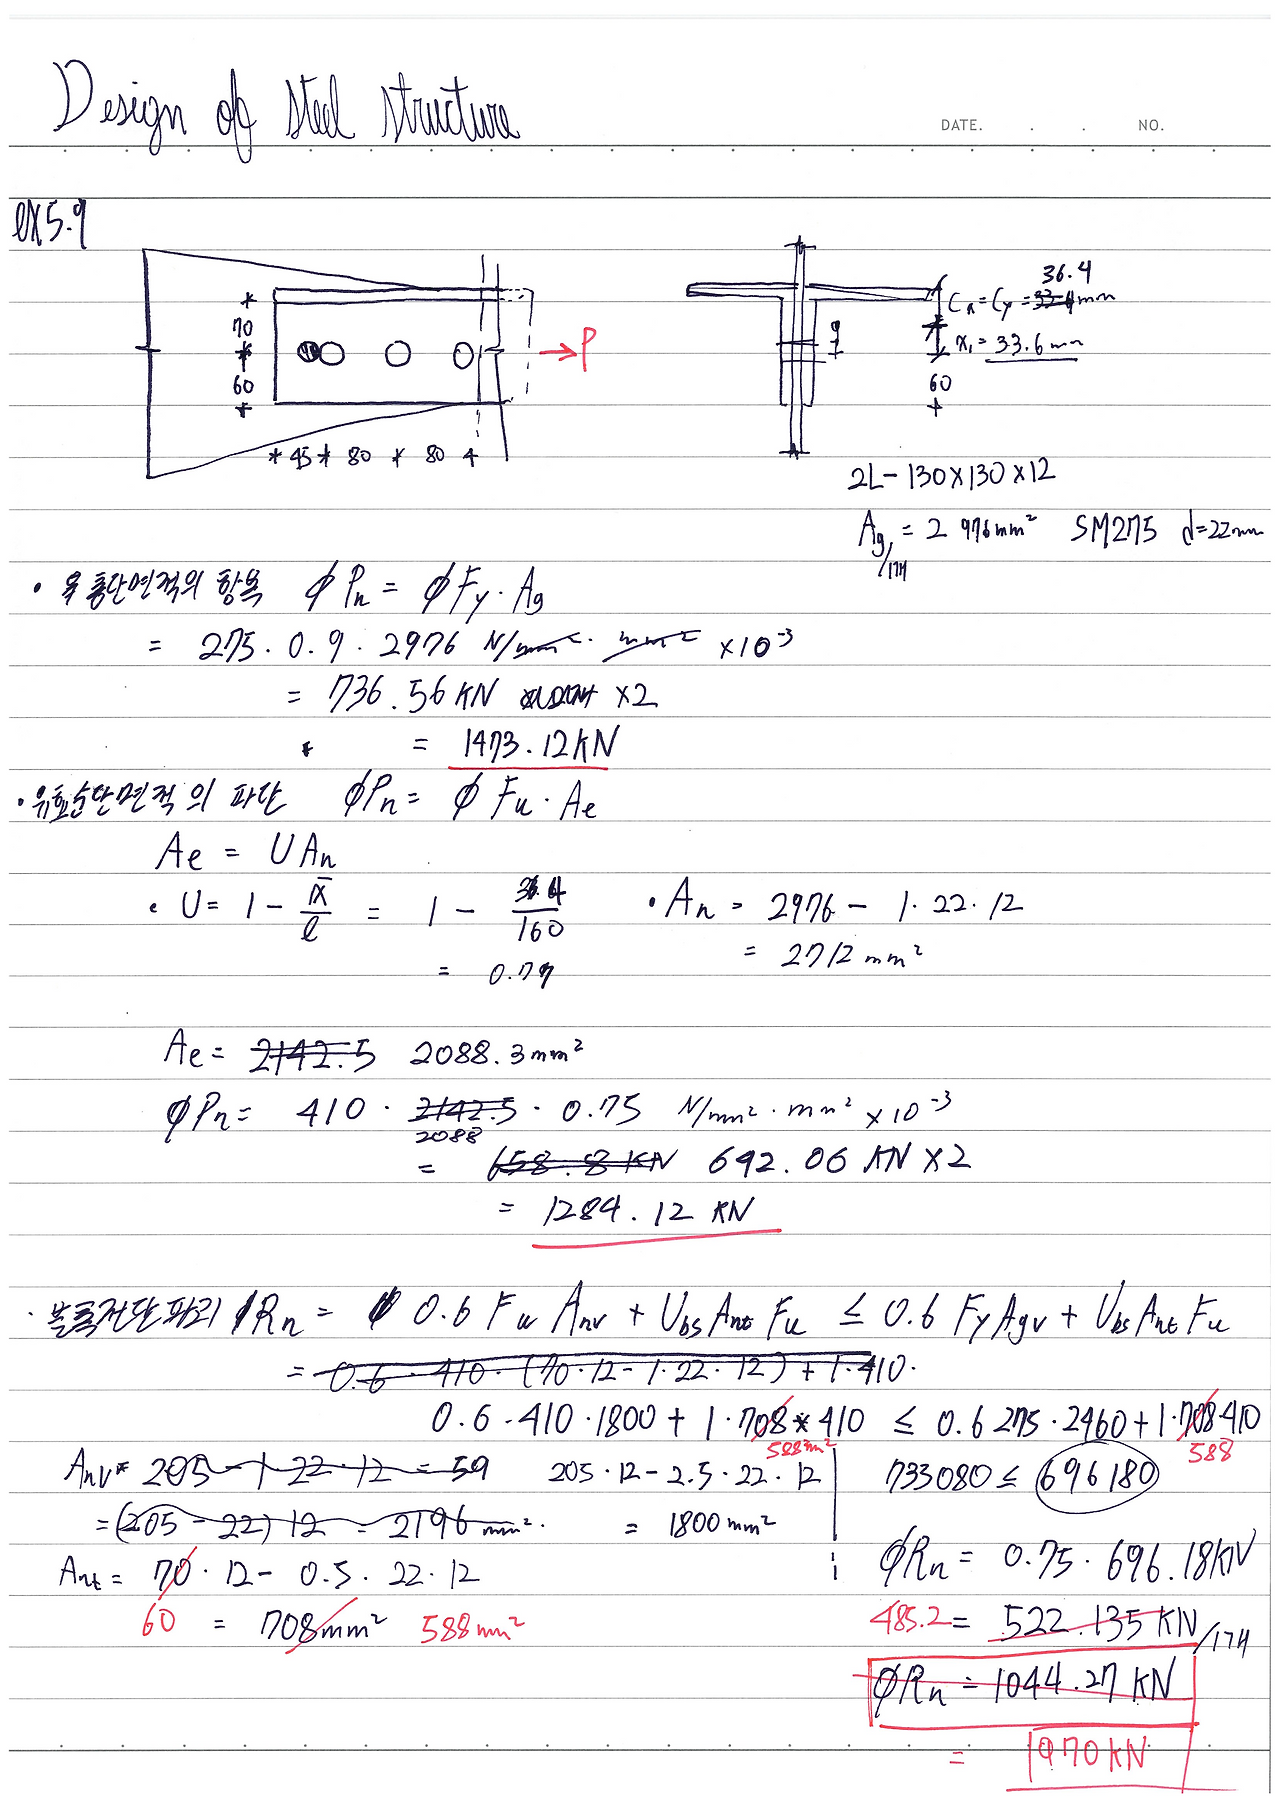 Design of steel structure
DATE. . . NO.
ex 5.9
70
60
45 80 80
P
36.4
Cx = Cy = 33.4 mm
x1 = 33.6 mm
60
2L - 130 × 130 × 12
Ag = 2 976 mm² SM275 d=22mm
/1개
• 총단면적의 항복 φPn = φFy · Ag
= 275 · 0.9 · 2976 N/mm² · mm² ×10⁻³
= 736.56 KN ×2
= 1473.12 KN
• 유효순단면적의 파단 φPn = φ Fu · Ae
Ae = U An
• U = 1 - x̄/l = 1 - 36.4/160 • An = 2976 - 1 · 22 · 12
= 0.77 = 2712 mm²
Ae = 2142.5 2088.3 mm²
φPn = 410 · 2142.5 · 0.75 N/mm² · mm² ×10⁻³
2088
= 658.8 KN 692.06 KN ×2
= 1284.12 KN
· 블록전단파괴 φRn = φ 0.6 Fu Anv + Ubs Ant Fu ≤ 0.6 Fy Agv + Ubs Ant Fu
= 0.6 · 410 · (70·12 - 1·22·12) + 1·410·
0.6 · 410 · 1800 + 1 · 708 * 410 ≤ 0.6 275 · 2460 + 1 · 708 · 410
588mm² 588
Anv = 205 - 1 · 22 · 12 = 59 205 · 12 - 2.5 · 22 · 12 733080 ≤ 696180
= (205 - 22) 12 = 2196 mm² · = 1800 mm²
Ant = 70 · 12 - 0.5 · 22 · 12 φRn = 0.75 · 696.18KN
60 = 708mm² 588mm² 485.2 = 522.135 KN /1개
φRn = 1044.27 KN
= 970 KN